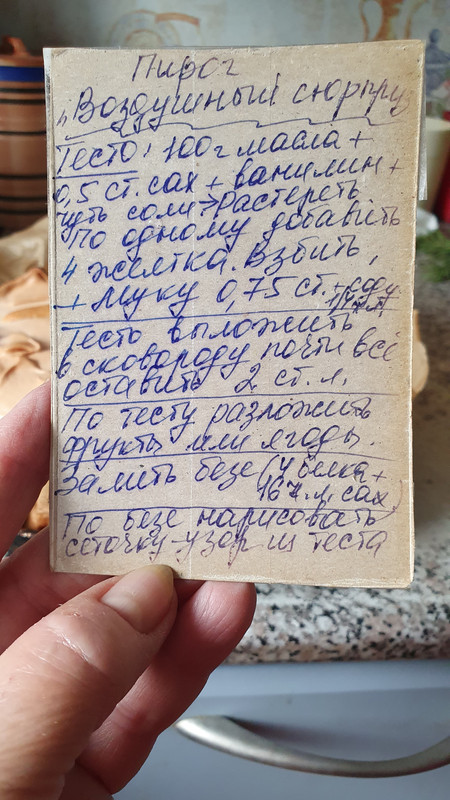 Пирог
„Воздушный сюрприз
Тесто: 100 г масла +
0,5 ст. сах + ванилин +
чуть соли → Растереть
По одному добавить
4 желтка. Взбить,
+ муку 0,75 ст. + соду
1/4 ч.л.
Тесто выложить
в сковороду почти всё
оставить 2 ст. л.
По тесту разложить
фрукты или ягоды.
Залить безе (4 белка +
сах)
По безе нарисовать
сеточку-узор из теста